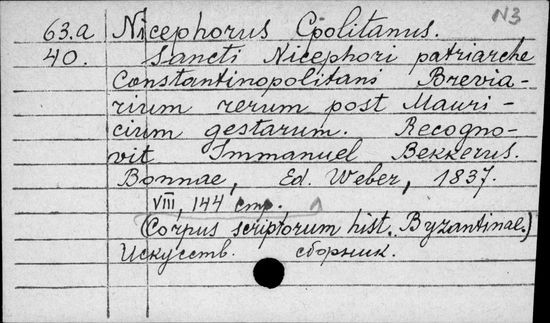 N3
63.a Nicephorus Cpolitanus.
40. Sancti Nicephori patriarche
Constantinopolitani Brevia-
rium rerum post Mauri-
cium gestarum. Recogno-
vit Immanuel Bekkerus.
Bonnae, Ed. Weber, 1837.
VIII, 144 стр.
(Corpus scriptorum hist. Byzantinae.)
Искусств. сборник.